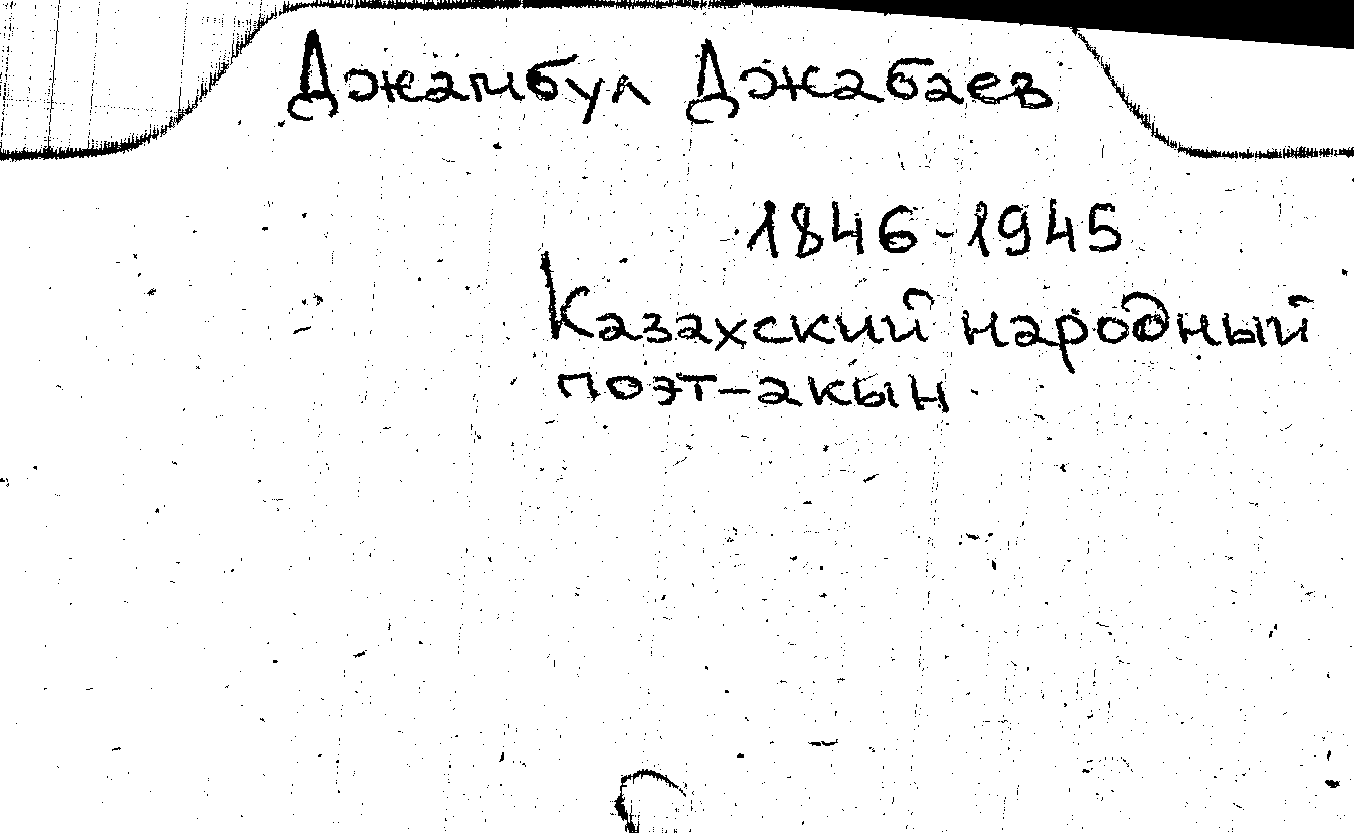 Джамбул Джабаев
1846-1945
Казахский народный
поэт-акын